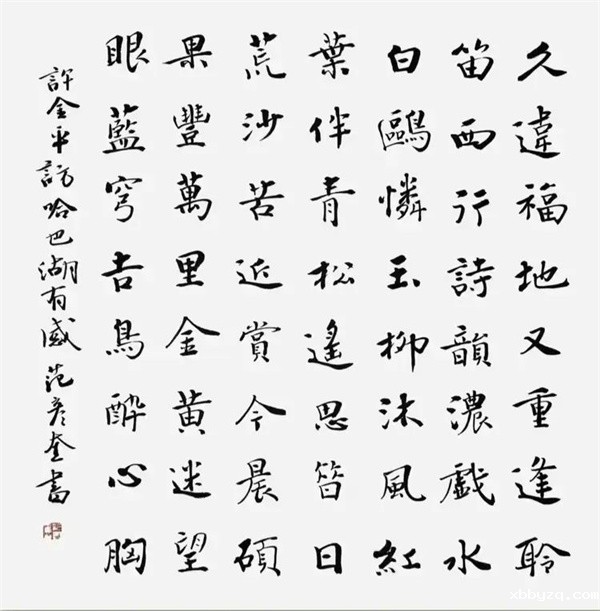 久違福地又重逢聆
笛西行詩韻濃戲水
白鷗憐玉柳沐風紅
葉伴青松遙思昔日
荒沙苦近賞今晨碩
果豐萬里金黄迷望
眼藍穹吉鳥醉心胸
許金平訪哈巴湖有感 范彦奎書
xbbyzq.com